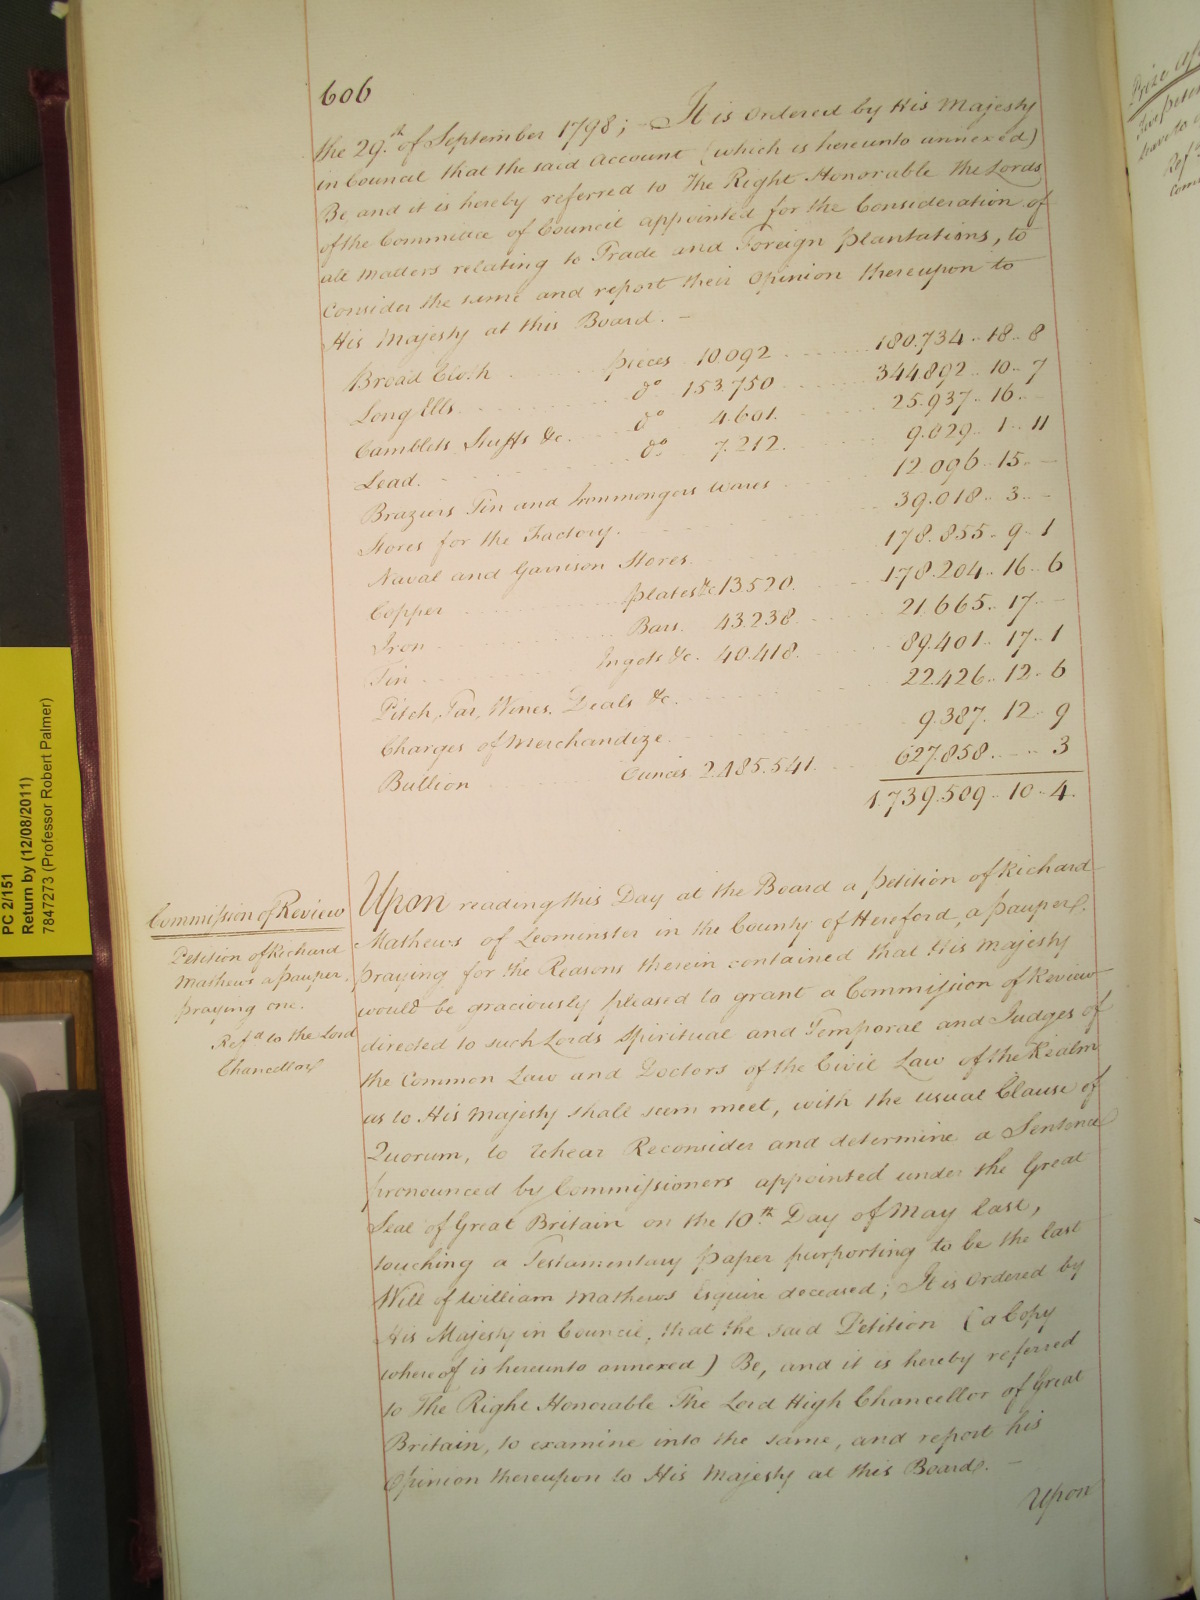 606
the 29.th of September 1798; — It is ordered by His Majesty
in Council that the said Account (which is hereunto annexed)
Be and it is hereby referred to The Right Honorable the Lords
of the Committee of Council appointed for the Consideration of
all Matters relating to Trade and Foreign Plantations, to
Consider the same and report their Opinion thereupon to
His Majesty at this Board. —
Broad Cloth pieces 10.092 180.734 .. 18 .. 8
Long Ells do 153.750 344.892 .. 10 .. 7
Camblets Stuffs &c. do 4.601. 25.937 .. 16. —
Lead. do 7.212. 9.029 .. 1 .. 11
Braziers Tin and Ironmongers Wares 12.096 .. 15 .. —
Stores for the Factory. 39.018 .. 3 .. —
Naval and Garrison Stores. 178.855 .. 9 .. 1
Copper plates &c 13.520. 178.204 .. 16 .. 6
Iron Bars. 43.238 21.665 .. 17 —
Tin Ingots &c. 40.418. 89.401 .. 17 .. 1
Pitch, Tar, Wines, Deals &c. 22.426 .. 12 .. 6
Charges of Merchandize 9.387. 12 .. 9
Bullion Ounces 2.485.541. 627.858 .. — .. 3
1.739.509 .. 10 .. 4.
Commission of Review
Petition of Richard
Mathews a pauper.
praying one.
Refd to the Lord
Chancellor
Upon reading this Day at the Board a petition of Richard
Mathews of Leominster in the County of Hereford, a pauper.
praying for the Reasons therein contained that His Majesty
would be graciously pleased to grant a Commission of Review
directed to such Lords Spiritual and Temporal and Judges of
the Common Law and Doctors of the Civil Law of the Realm
as to His Majesty shall seem meet, with the usual Clause of
Quorum, to rehear Reconsider and determine a Sentence
pronounced by Commissioners appointed under the Great
Seal of Great Britain on the 10.th Day of May last,
touching a Testamentary paper purporting to be the last
Will of William Mathews Esquire deceased; It is Ordered by
His Majesty in Council, that the said Petition (a Copy
whereof is hereunto annexed) Be, and it is hereby referred
to The Right Honorable The Lord High Chancellor of Great
Britain, to examine into the same, and report his
Opinion thereupon to His Majesty at this Board. —
Upon
PC 2/151
Return by (12/08/2011)
7847273 (Professor Robert Palmer)